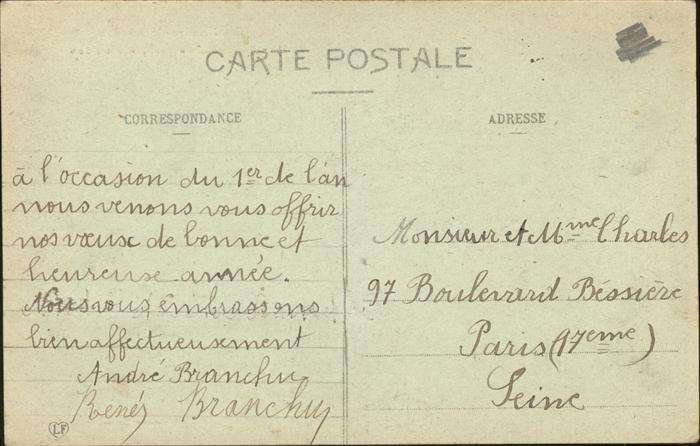 CARTE POSTALE
CORRESPONDANCE
à l'occasion du 1er de l'an
nous venons vous offrir
nos vœux de bonne et
heureuse année.
Nous vous embrassons
bien affectueusement
André Branchu
René Branchu
LF
ADRESSE
Monsieur et Mme Charles
97 Boulevard Bessière
Paris (17eme)
Seine